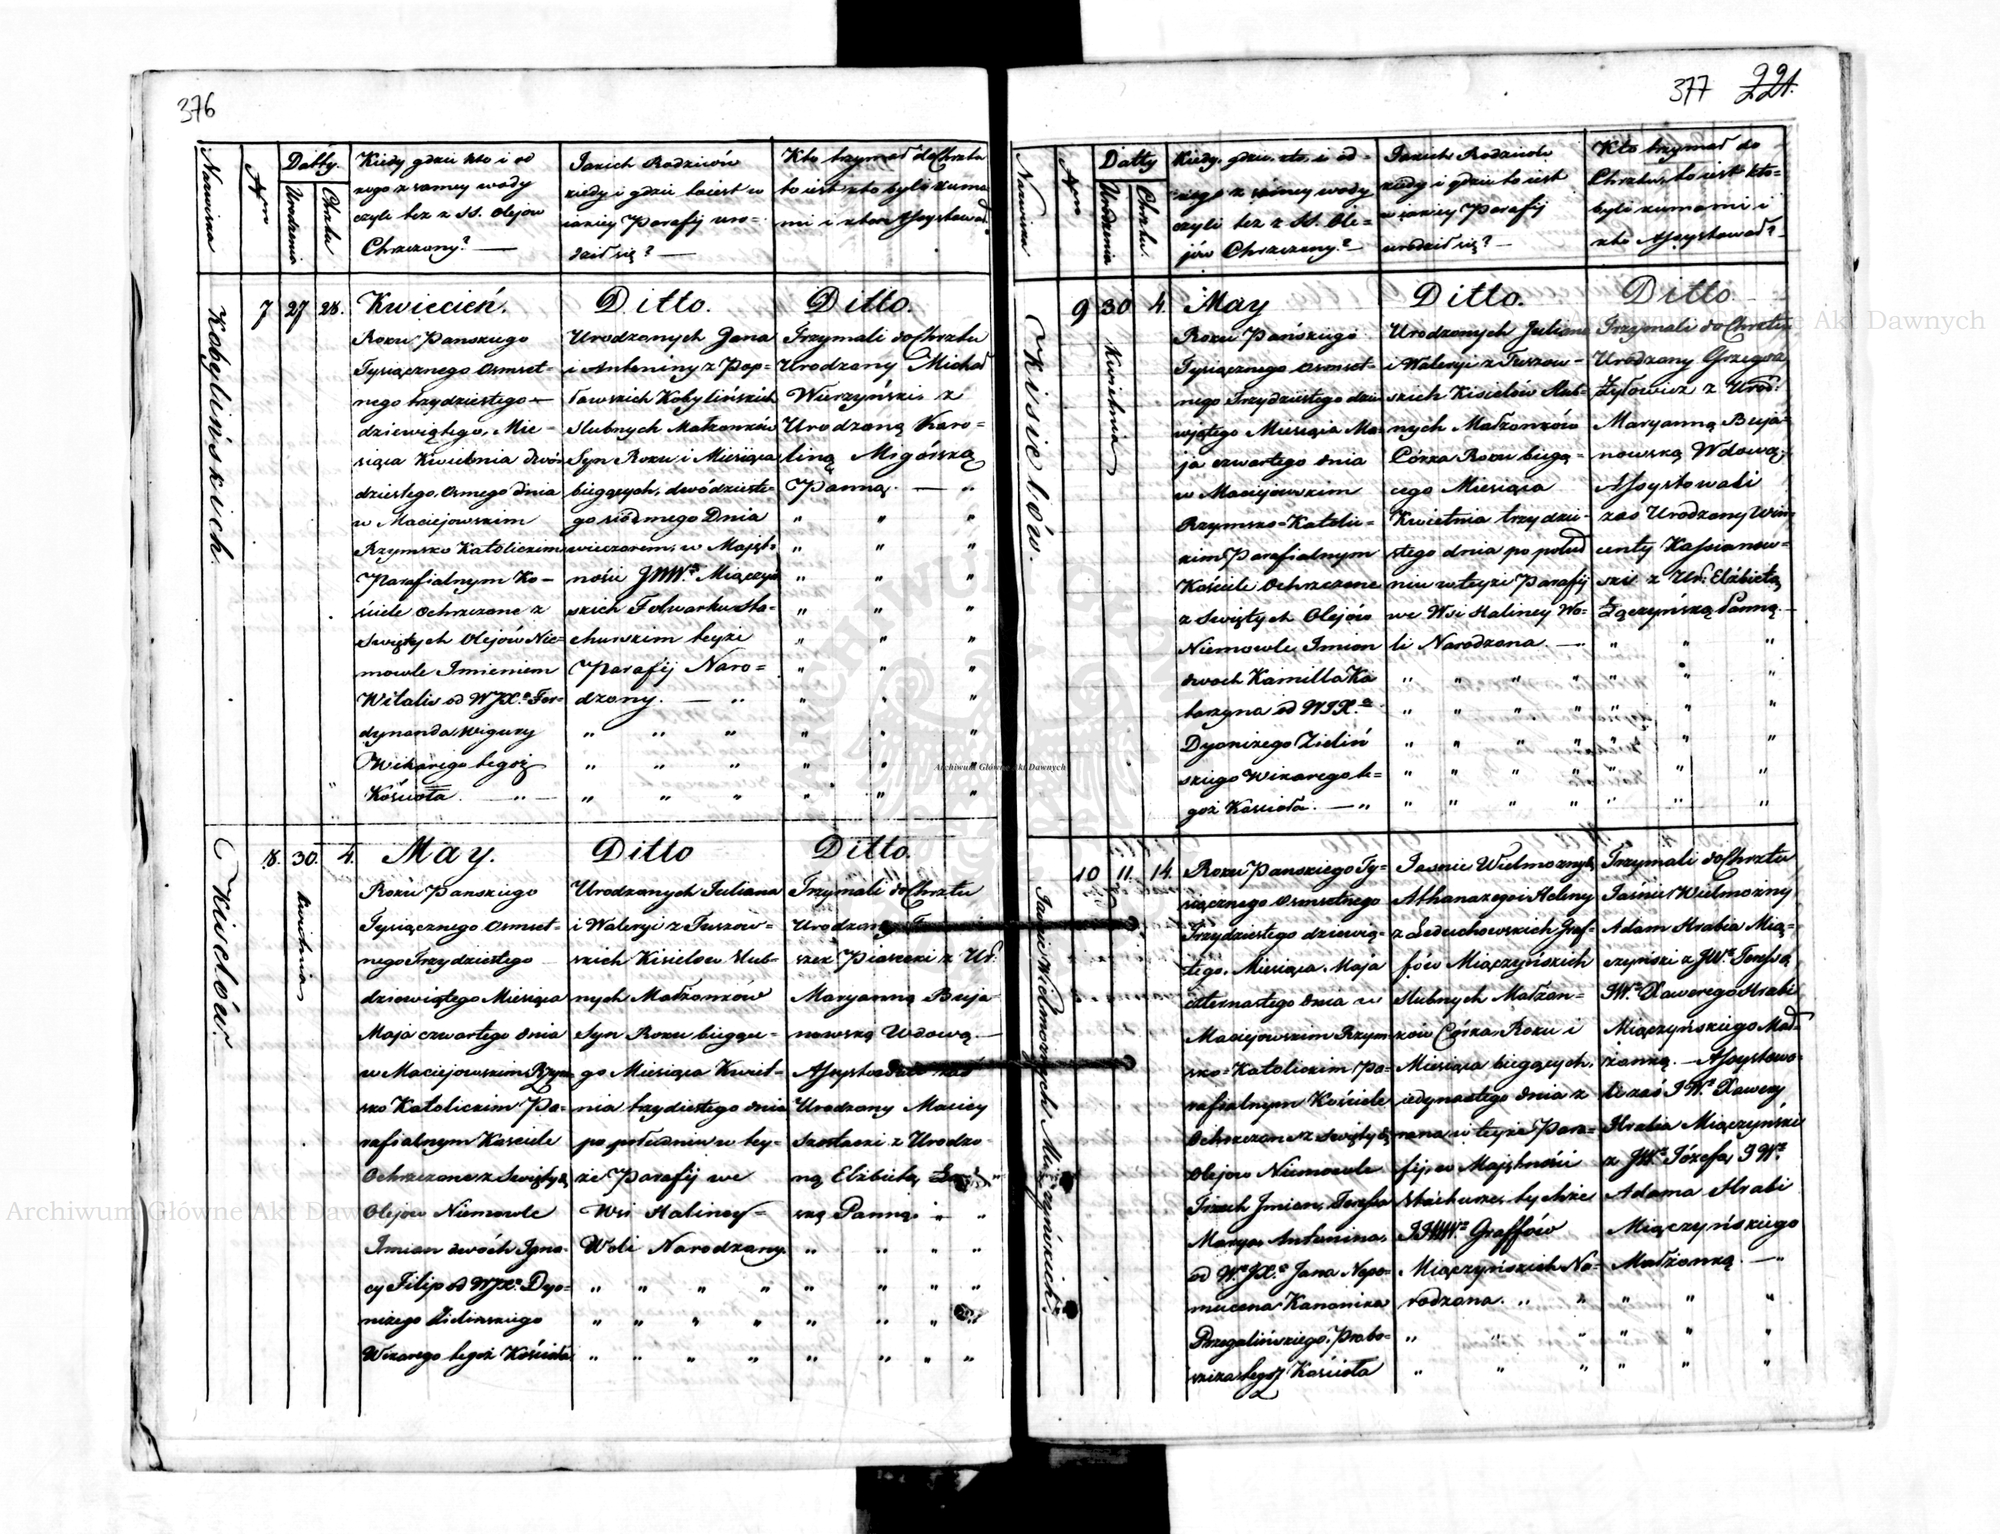 376
Nazwiska
Nro
Datty.
Urodzenia
Chrztu
Kiedy gdzie kto i od
czego z samey wody
czyli też z SS. Olejów
Chrzczony? —
Jakich Rodziców
kiedy i gdzie to iest w
iakiey Parafij uro-
dził się? —
Kto trzymał do Chrztu
to iest kto byli kuma
mi i kto Assystował
Kobylińskich.
7
27
28.
Kwiecień.
Roku Panskiego
Tysiącznego Osmset-
nego trzydziestego
dziewiątego, Mie-
siąca Kwietnia dwó
dziestego osmego dnia
w Maciejowskim
Rzymsko Katolickim
Parafialnym Ko-
ściele Ochrzczone z
Swiętych Olejów Nie-
mowle Imieniem
Witalis od WJX. Fer-
dynanda Wigury
Wikarego tegoż
Kościoła.
Ditto.
Urodzonych Jana
i Antoniny z Pop-
ławskich Kobylińskich
Slubnych Małżonków
Syn Roku i Miesiąca
bieżących, dwódzieste-
go siódmego Dnia
wieczorem, w Maięt-
ności JWW. Miączyń
skich Folwarku Sta-
churskim teyże
Parafij Naro-
dzony. —
Ditto.
Trzymali do Chrztu
Urodzony Michał
Wierzyński z
Urodzoną Karo-
liną Mogórską
Panną. —
Kisielów.
8.
30.
Kwietnia
4.
May.
Roku Panskiego
Tysiącznego Osmset-
nego Trzydziestego
dziewiątego Miesiąca
Maja czwartego dnia
w Maciejowskim Rzym
sko Katolickim Pa-
rafialnym Kościele
Ochrzczone z Swiętych
Olejów Niemowle
Imion dwóch Igna-
cy Filip od WJX. Dyo-
nizego Zielinskiego
Wikarego tegoż Kościoła
Ditto
Urodzonych Juliana
i Waleryi z Tuszow-
skich Kisielow Slub-
nych Małżonków
Syn Roku bieżące-
go Miesiąca Kwiet-
nia trzydziestego dnia
po południu w tey-
że Parafij we
Wsi Haliney-
Woli Narodzany.
Ditto.
Trzymali do Chrztu
Urodzony
szek Piasecki z Ur.
Maryanną Buja-
nowską Wdową —
Assystowali zaś
Urodzony Maciey
Szostacki z Urodzo
ną Elżbietą
ską Panną
377 221.
Nazwiska
Nro
Datty
Urodzenia
Chrztu.
Kiedy, gdzie, kto, i od-
czego z samey wody
czyli też z SS. Ole-
jów Chrzczony? —
Jakich Rodziców
kiedy i gdzie to iest
w iakiey Parafij
urodził się? —
Kto trzymał do
Chrztu, to iest kto-
byli kumami i
kto Assystował?
Kisielów.
9
30
Kwietnia
4.
May
Roku Pańskiego
Tysiącznego Osmset-
nego Trzydziestego dzie
wiątego Miesiąca Ma-
ja czwartego dnia
w Maciejowskim
Rzymsko-Katolic-
kim Parafialnym
Kościele Ochrzczone
z Swiętych Olejów
Niemowle Imion
dwoch Kamilla Ka
tarzyna od WJX.
Dyonizego Zieliń
skiego Wikarego te-
goż Kościoła. —
Ditto.
Urodzonych Juliana
i Waleryi z Tuszow-
skich Kisielów Slub-
nych Małżonków
Córka Roku bieżą-
cego Miesiąca
Kwietnia trzydzie-
stego dnia po połud
niu w teyże Parafij
we Wsi Haliney Wo-
li Narodzona. —
Ditto
Trzymali do Chrztu
Urodzony Grzegorz
Żyłowicz z Urod:
Maryanną Buja-
nowską Wdową,
Assystowali
zaś Urodzony Win
centy Kassianow-
ski z Ur: Elżbietą
Łączyńską Panną. —
Jaśnie Wielmożnych Miączyńskich. —
10
11.
14.
Roku Panskiego Ty-
siącznego Osmsetnego
Trzydziestego dziewią-
tego, Miesiąca Maja
czternastego dnia w
Maciejowskim Rzym
sko-Katolickim Pa-
rafialnym Kościele
Ochrzczone z Swiętych
Olejow Niemowle
Trzech Imion, Teressa
Marya, Antonina,
od W. JX. Jana Nepo-
mucena Kanonika
Przegalińskiego. Probo-
szcza tegoż Kościoła
Jaśnie Wielmożnych
Athanazego i Heleny
z Leduchowskich Graf-
fów Miączyńskich
Slubnych Małżon-
ków Córka, Roku i
Miesiąca bieżących,
iedynastego dnia z
rana w teyże Para-
fij w Majętności
Stachurze, tychże
JJWW. Graffów
Miączyńskich Na-
rodzona.
Trzymali do Chrztu
Jaśnie Wielmożny
Adam Hrabia Mią-
czyński z JW. Teressą
JW. Xawerego Hrabi
Miączyńskiego Mał-
żonką. — Assystowa-
li zaś JW. Xawery
Hrabia Miączyński
z JW. Józefą JW.
Adama Hrabi
Miączyńskiego
Małżonką. —
Archiwum Główne Akt Dawnych
Archiwum Główne Akt Dawnych
Archiwum Główne Akt Dawnych